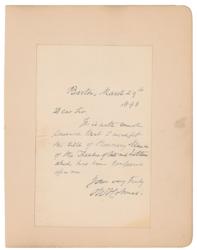 Boston, March 29th
1890
Dear Sir,
It is with much
pleasure that I accept
the title of Honorary Member
of the
which has been conferred
upon me
Yours very truly
O W Holmes.